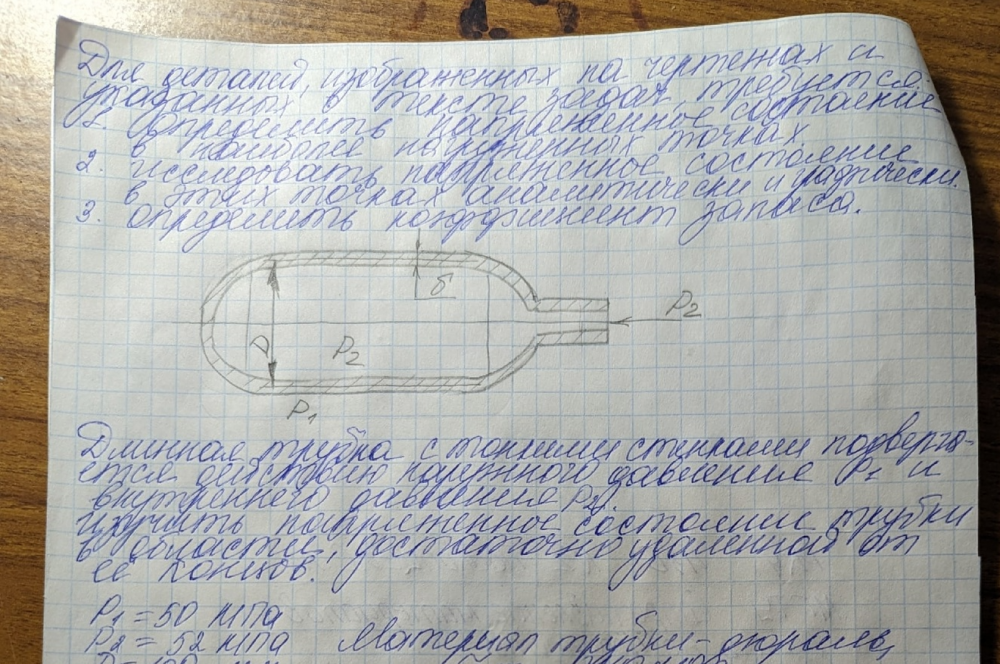 Для деталей, изображенных на чертежах и
указанных в тексте задач требуется:
1. определить напряженное состояние
в наиболее нагруженных точках
2. исследовать напряженное состояние
в этих точках аналитически и графически.
3. определить коэффициент запаса.
δ
P2
D
P2
P1
Длинная трубка с тонкими стенками подверга-
ется действию наружного давления P1 и
внутреннего давления P2.
Изучить напряженное состояние трубки
в области, достаточно удаленной от
её концов.
P1 = 50 мПа
P2 = 52 мПа Материал трубки - дюраль